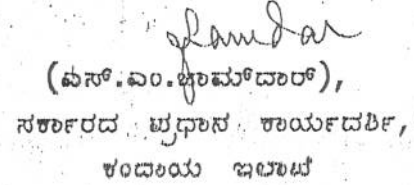 (ಎಸ್.ಎಂ.ಜಾಮ್‌ದಾರ್),
ಸರ್ಕಾರದ ಪ್ರಧಾನ ಕಾರ್ಯದರ್ಶಿ,
ಕಂದಾಯ ಇಲಾಖೆ